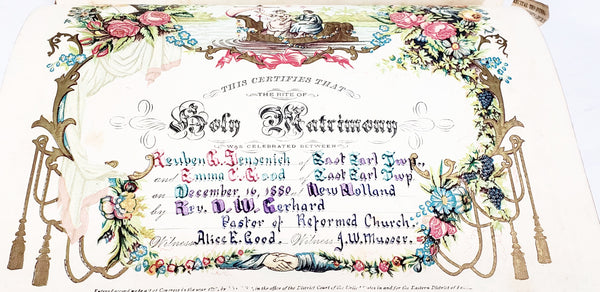 THIS CERTIFIES THAT
THE RITE OF
Holy Matrimony
WAS CELEBRATED BETWEEN
Reuben G. Sensenich of East Earl Twp.,
and Emma C. Good of East Earl Twp
on December 16, 1880. at New Holland
by Rev. D. W. Gerhard
Pastor of Reformed Church.
Witness Alice E. Good. Witness J. W. Musser.
in the office of the District Court of the United States in and for the Eastern District of